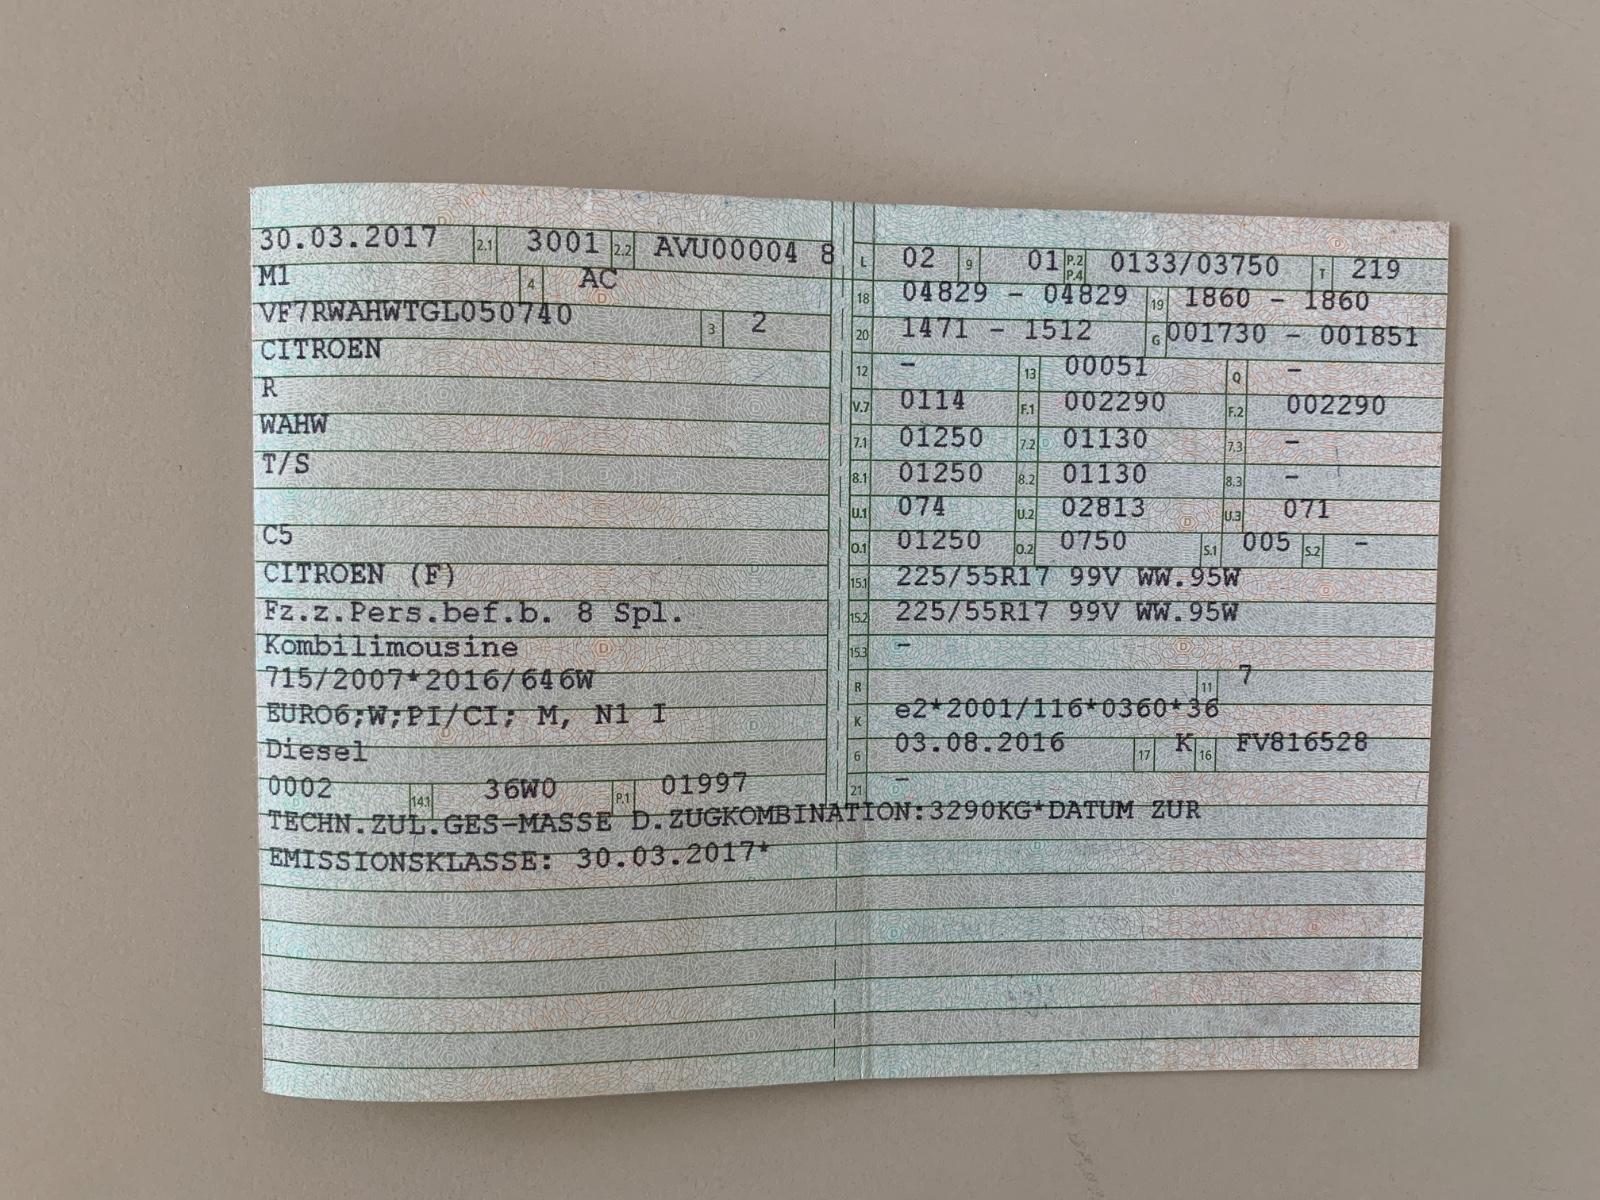 30.03.2017 2.1 3001 2.2 AVU00004 8
M1 4 AC
VF7RWAHWTGL050740 3 2
CITROEN
R
WAHW
T/S
C5
CITROEN (F)
Fz.z.Pers.bef.b. 8 Spl.
Kombilimousine
715/2007*2016/646W
EURO6;W;PI/CI; M, N1 I
Diesel
0002 14.1 36W0 P.1 01997
L 02 9 01 P.2 P.4 0133/03750 T 219
18 04829 - 04829 19 1860 - 1860
20 1471 - 1512 G 001730 - 001851
12 - 13 00051 Q -
V.7 0114 F.1 002290 F.2 002290
7.1 01250 7.2 01130 7.3 -
8.1 01250 8.2 01130 8.3 -
U.1 074 U.2 02813 U.3 071
O.1 01250 O.2 0750 S.1 005 S.2 -
15.1 225/55R17 99V WW.95W
15.2 225/55R17 99V WW.95W
15.3 -
R 11 7
K e2*2001/116*0360*36
6 03.08.2016 17 K 16 FV816528
21 -
TECHN.ZUL.GES-MASSE D.ZUGKOMBINATION:3290KG*DATUM ZUR
EMISSIONSKLASSE: 30.03.2017*